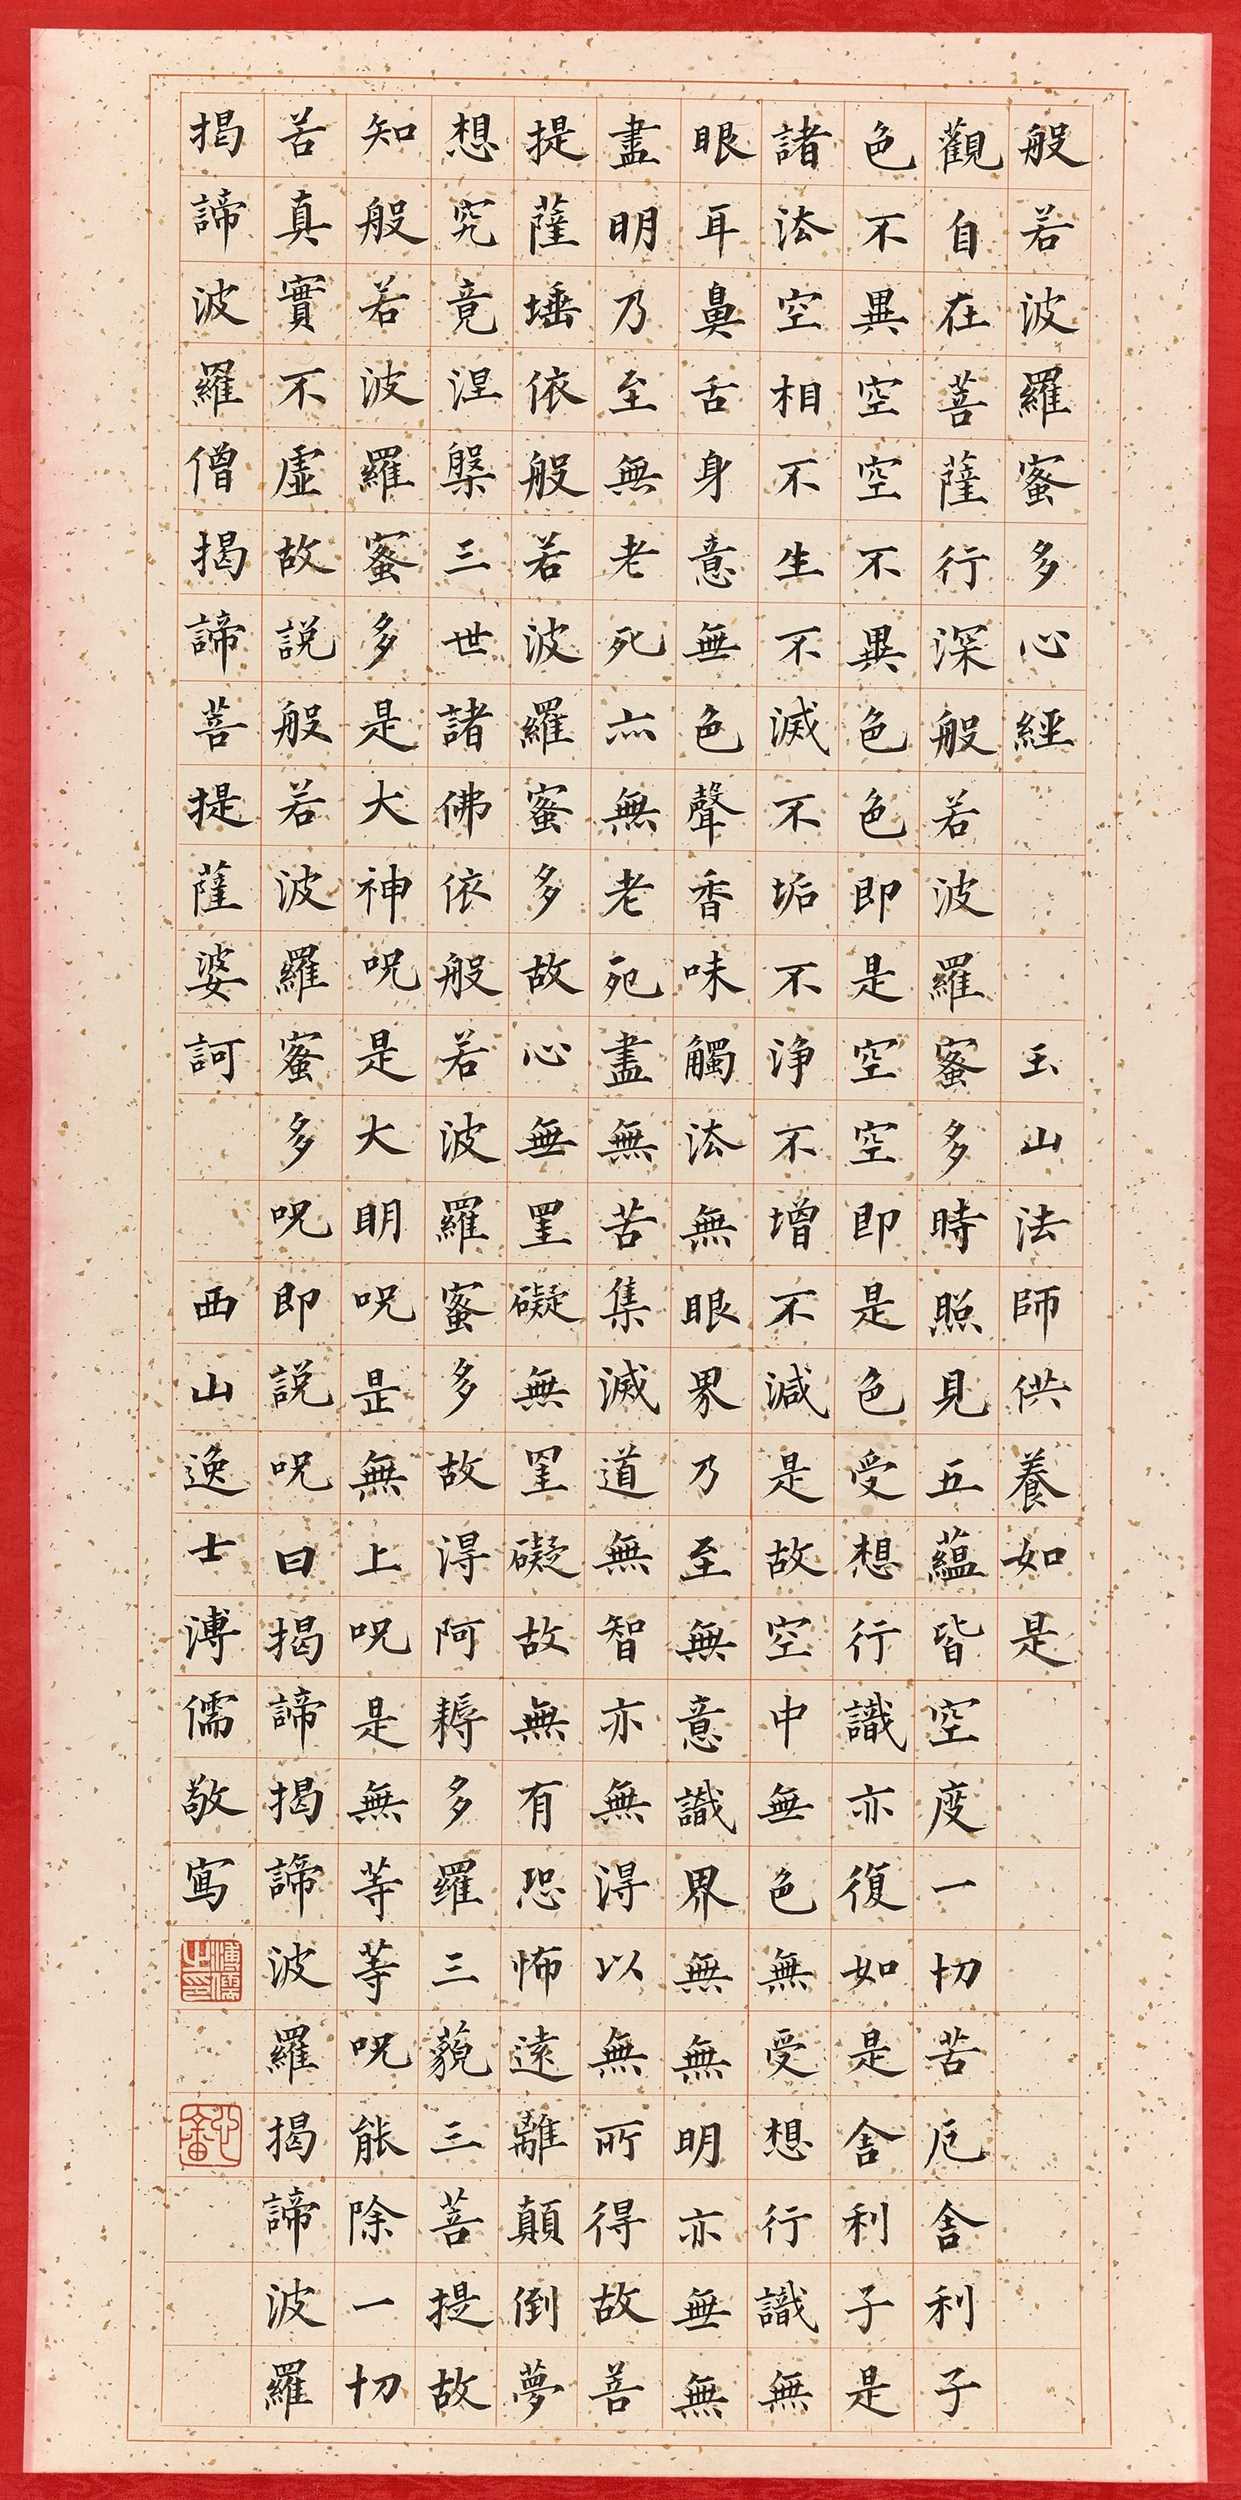 般若波羅蜜多心經 玉山法師供養如是
觀自在菩薩行深般若波羅蜜多時照見五蘊皆空度一切苦厄舍利子
色不異空空不異色色即是空空即是色受想行識亦復如是舍利子是
諸法空相不生不滅不垢不浄不增不減是故空中無色無受想行識無
眼耳鼻舌身意無色聲香味觸法無眼界乃至無意識界無無明亦無無
盡明乃至無老死亦無老死盡無苦集滅道無智亦無得以無所得故菩
提薩埵依般若波羅蜜多故心無罣礙無罣礙故無有恐怖遠離顛倒夢
想究竟涅槃三世諸佛依般若波羅蜜多故得阿耨多羅三藐三菩提故
知般若波羅蜜多是大神呪是大明呪是無上呪是無等等呪能除一切
苦真實不虛故説般若波羅蜜多呪即説呪曰揭諦揭諦波羅揭諦波羅
揭諦波羅僧揭諦菩提薩婆訶 西山逸士溥儒敬寫
溥儒之印
心畬